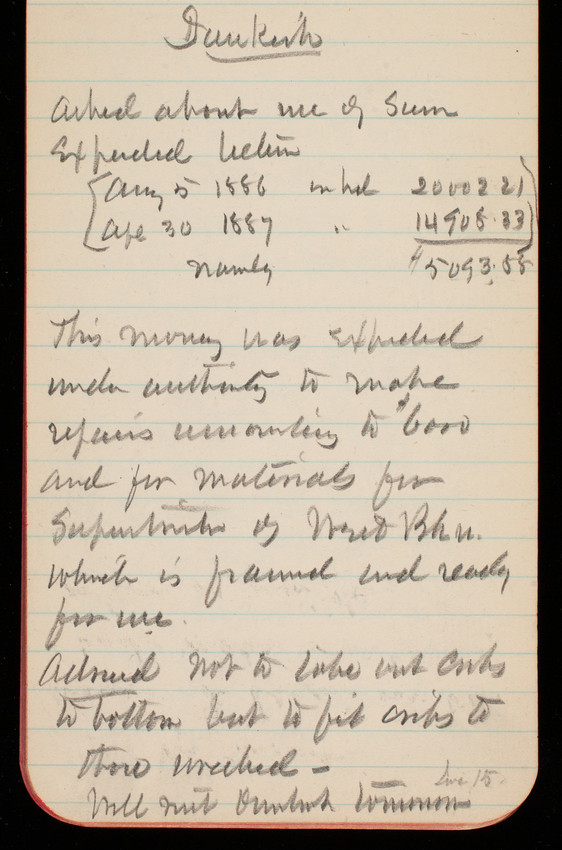 Dunkirk
Asked about use of sum
Expended between
Aug 5 1886 on hd 20002.21
Apr 30 1887 " 14908.33
namely $5093.88
This money was expended
under authority to make
repairs amounting to $6000
and for materials for
Superstructure of West Bkw.
which is framed and ready
for use.
Advised not to take out cribs
to bottom but to fit cribs to
those wrecked –
Will visit Dunkirk tomorrow